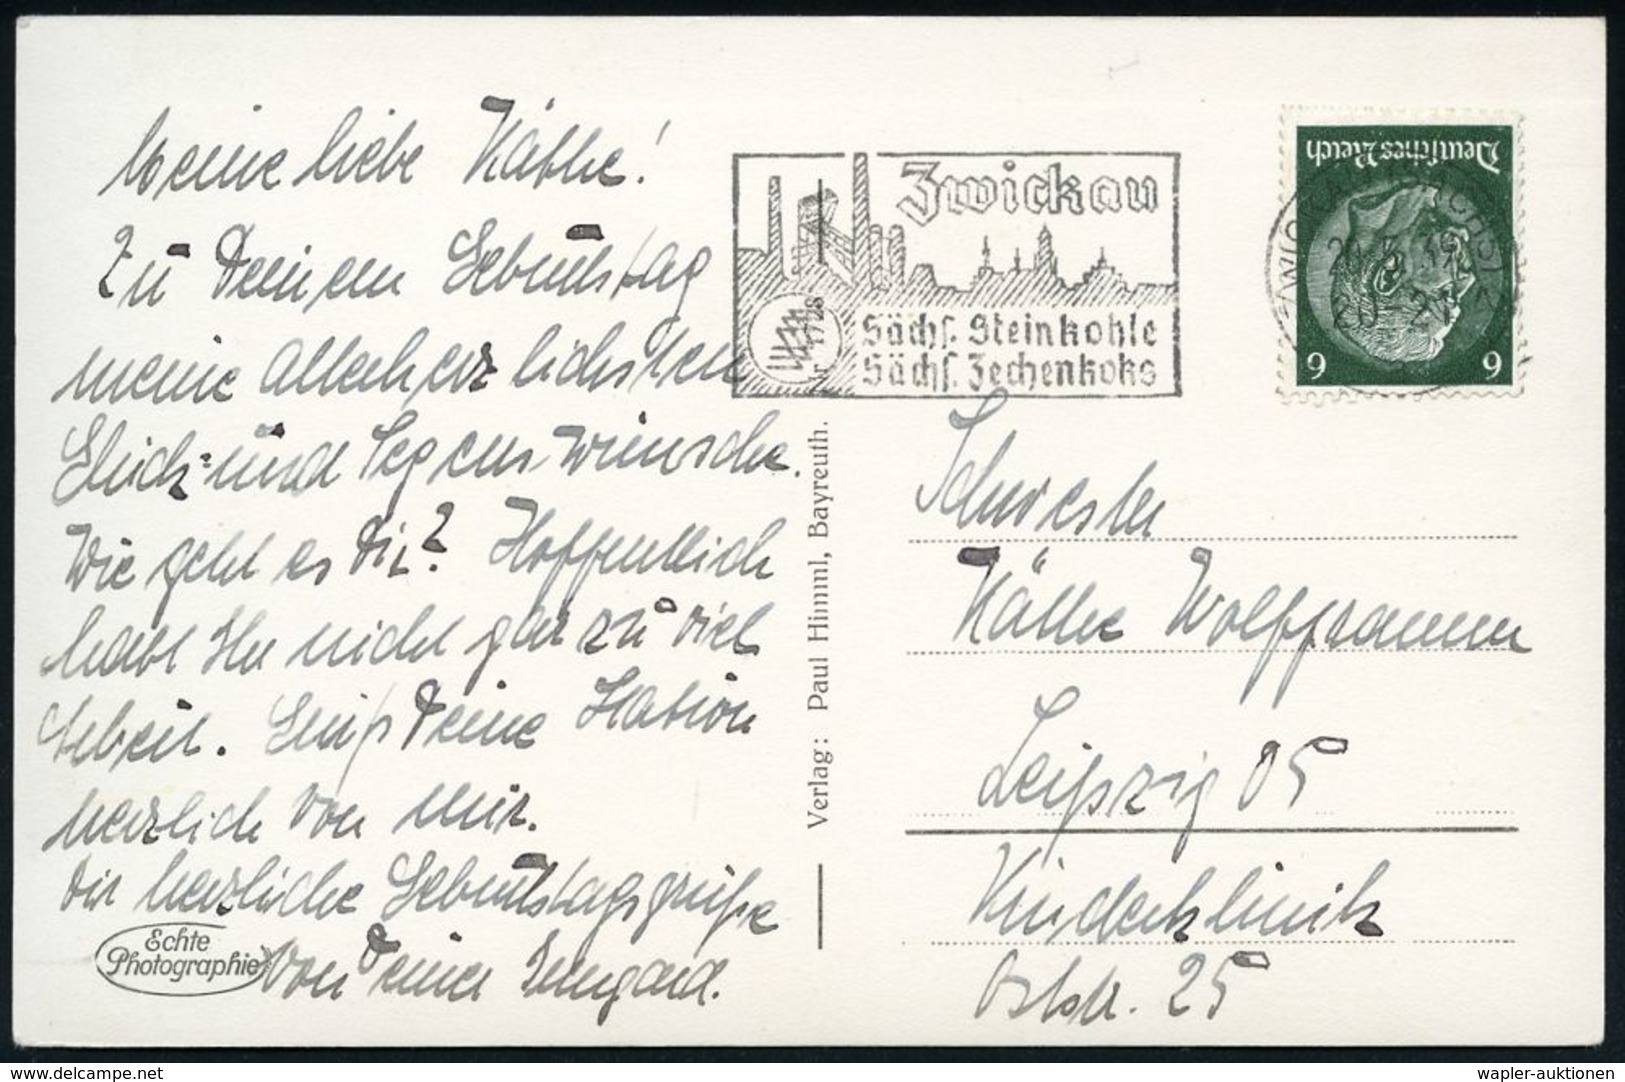 Meine liebe Käthe!
Zu Deinem Geburtstag
meine allerherzlichsten
Glück- und Segenswünsche.
Wie geht es Dir? Hoffentlich
habt Ihr nicht gar zu viel
Arbeit. Grüß Deine Station
herzlich von mir.
Dir herzliche Geburtstagsgrüße
von Deiner Irmgard.
Echte
Photographie
Verlag: Paul Himml, Bayreuth.
Zwickau
Sächs. Steinkohle
Sächs. Zechenkoks
Deutsches Reich
6 6
ZWICKAU (SACHS)
39
20-21
Schwester
Käthe Wolfframm
Leipzig O5
Kinderklinik
Oststr. 25
wapler-akte.com
wapler-auktionen